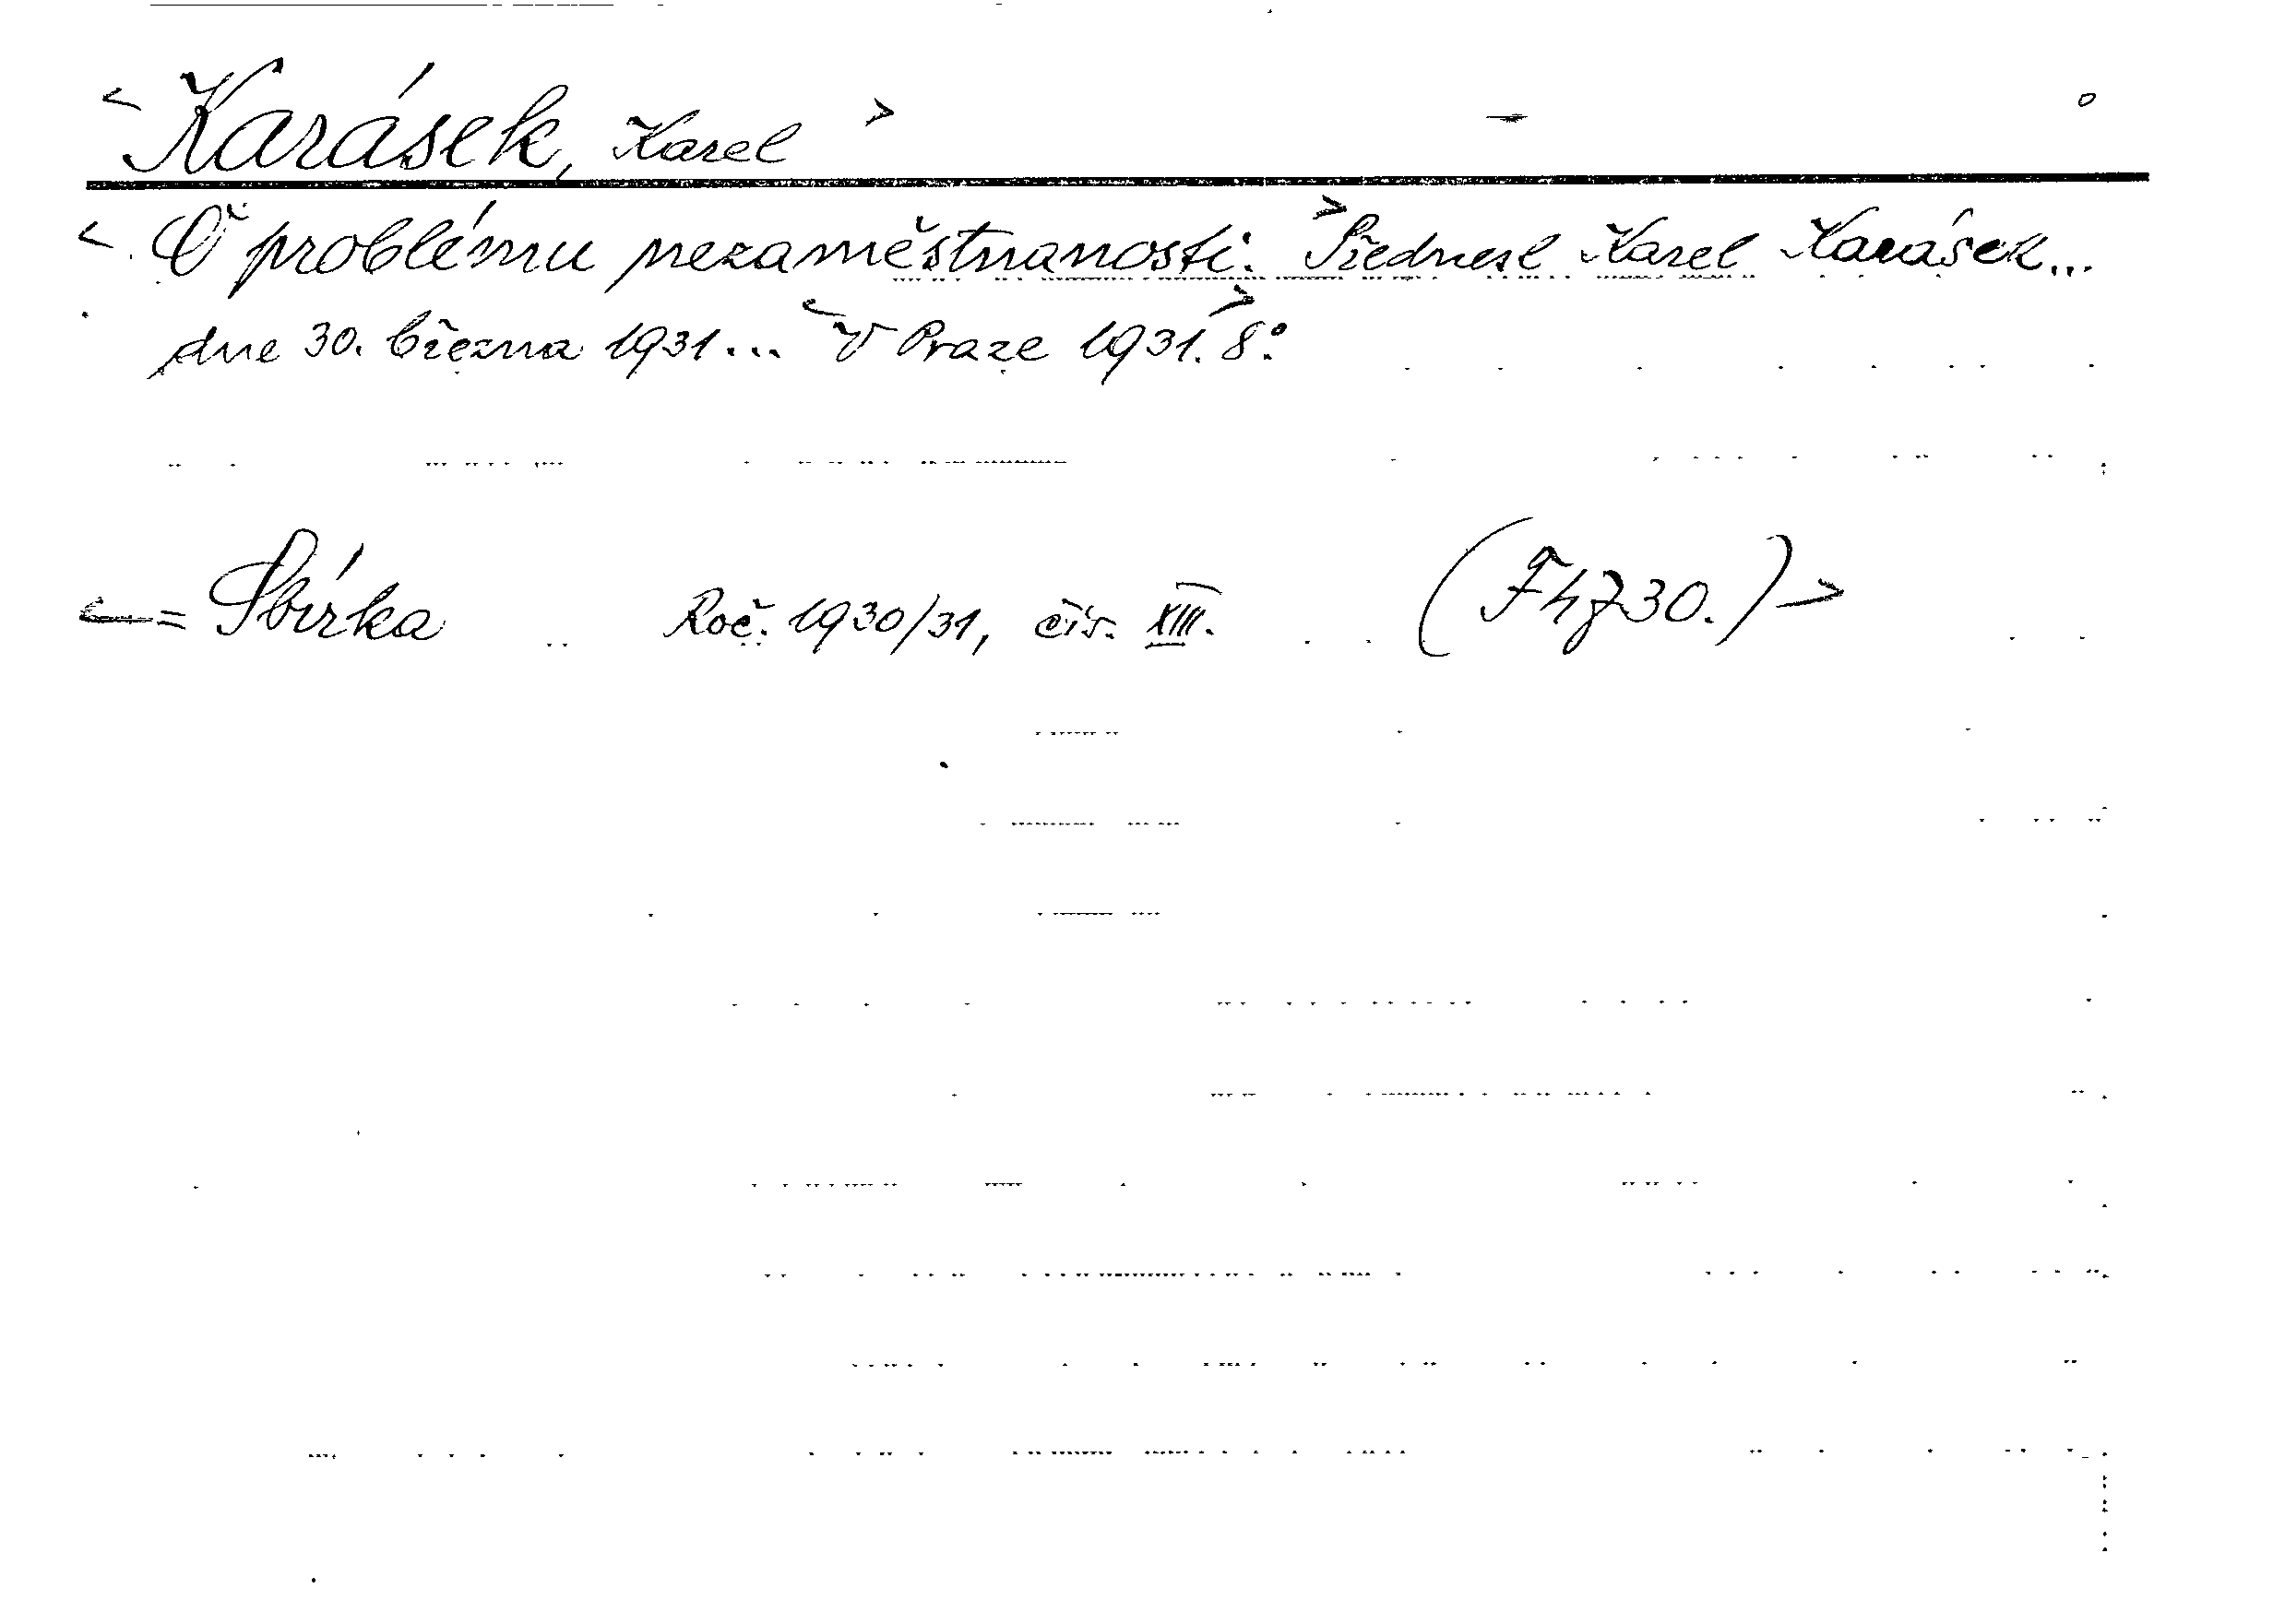 < Karásek, Karel >
< O problému nezaměstnanosti. > Přednesl Karel Karásek...
dne 30. března 1931... < V Praze 1931. > 8°.
<= Sbírka Roč. 1930/31, čís. XIII. (F h 730.) >